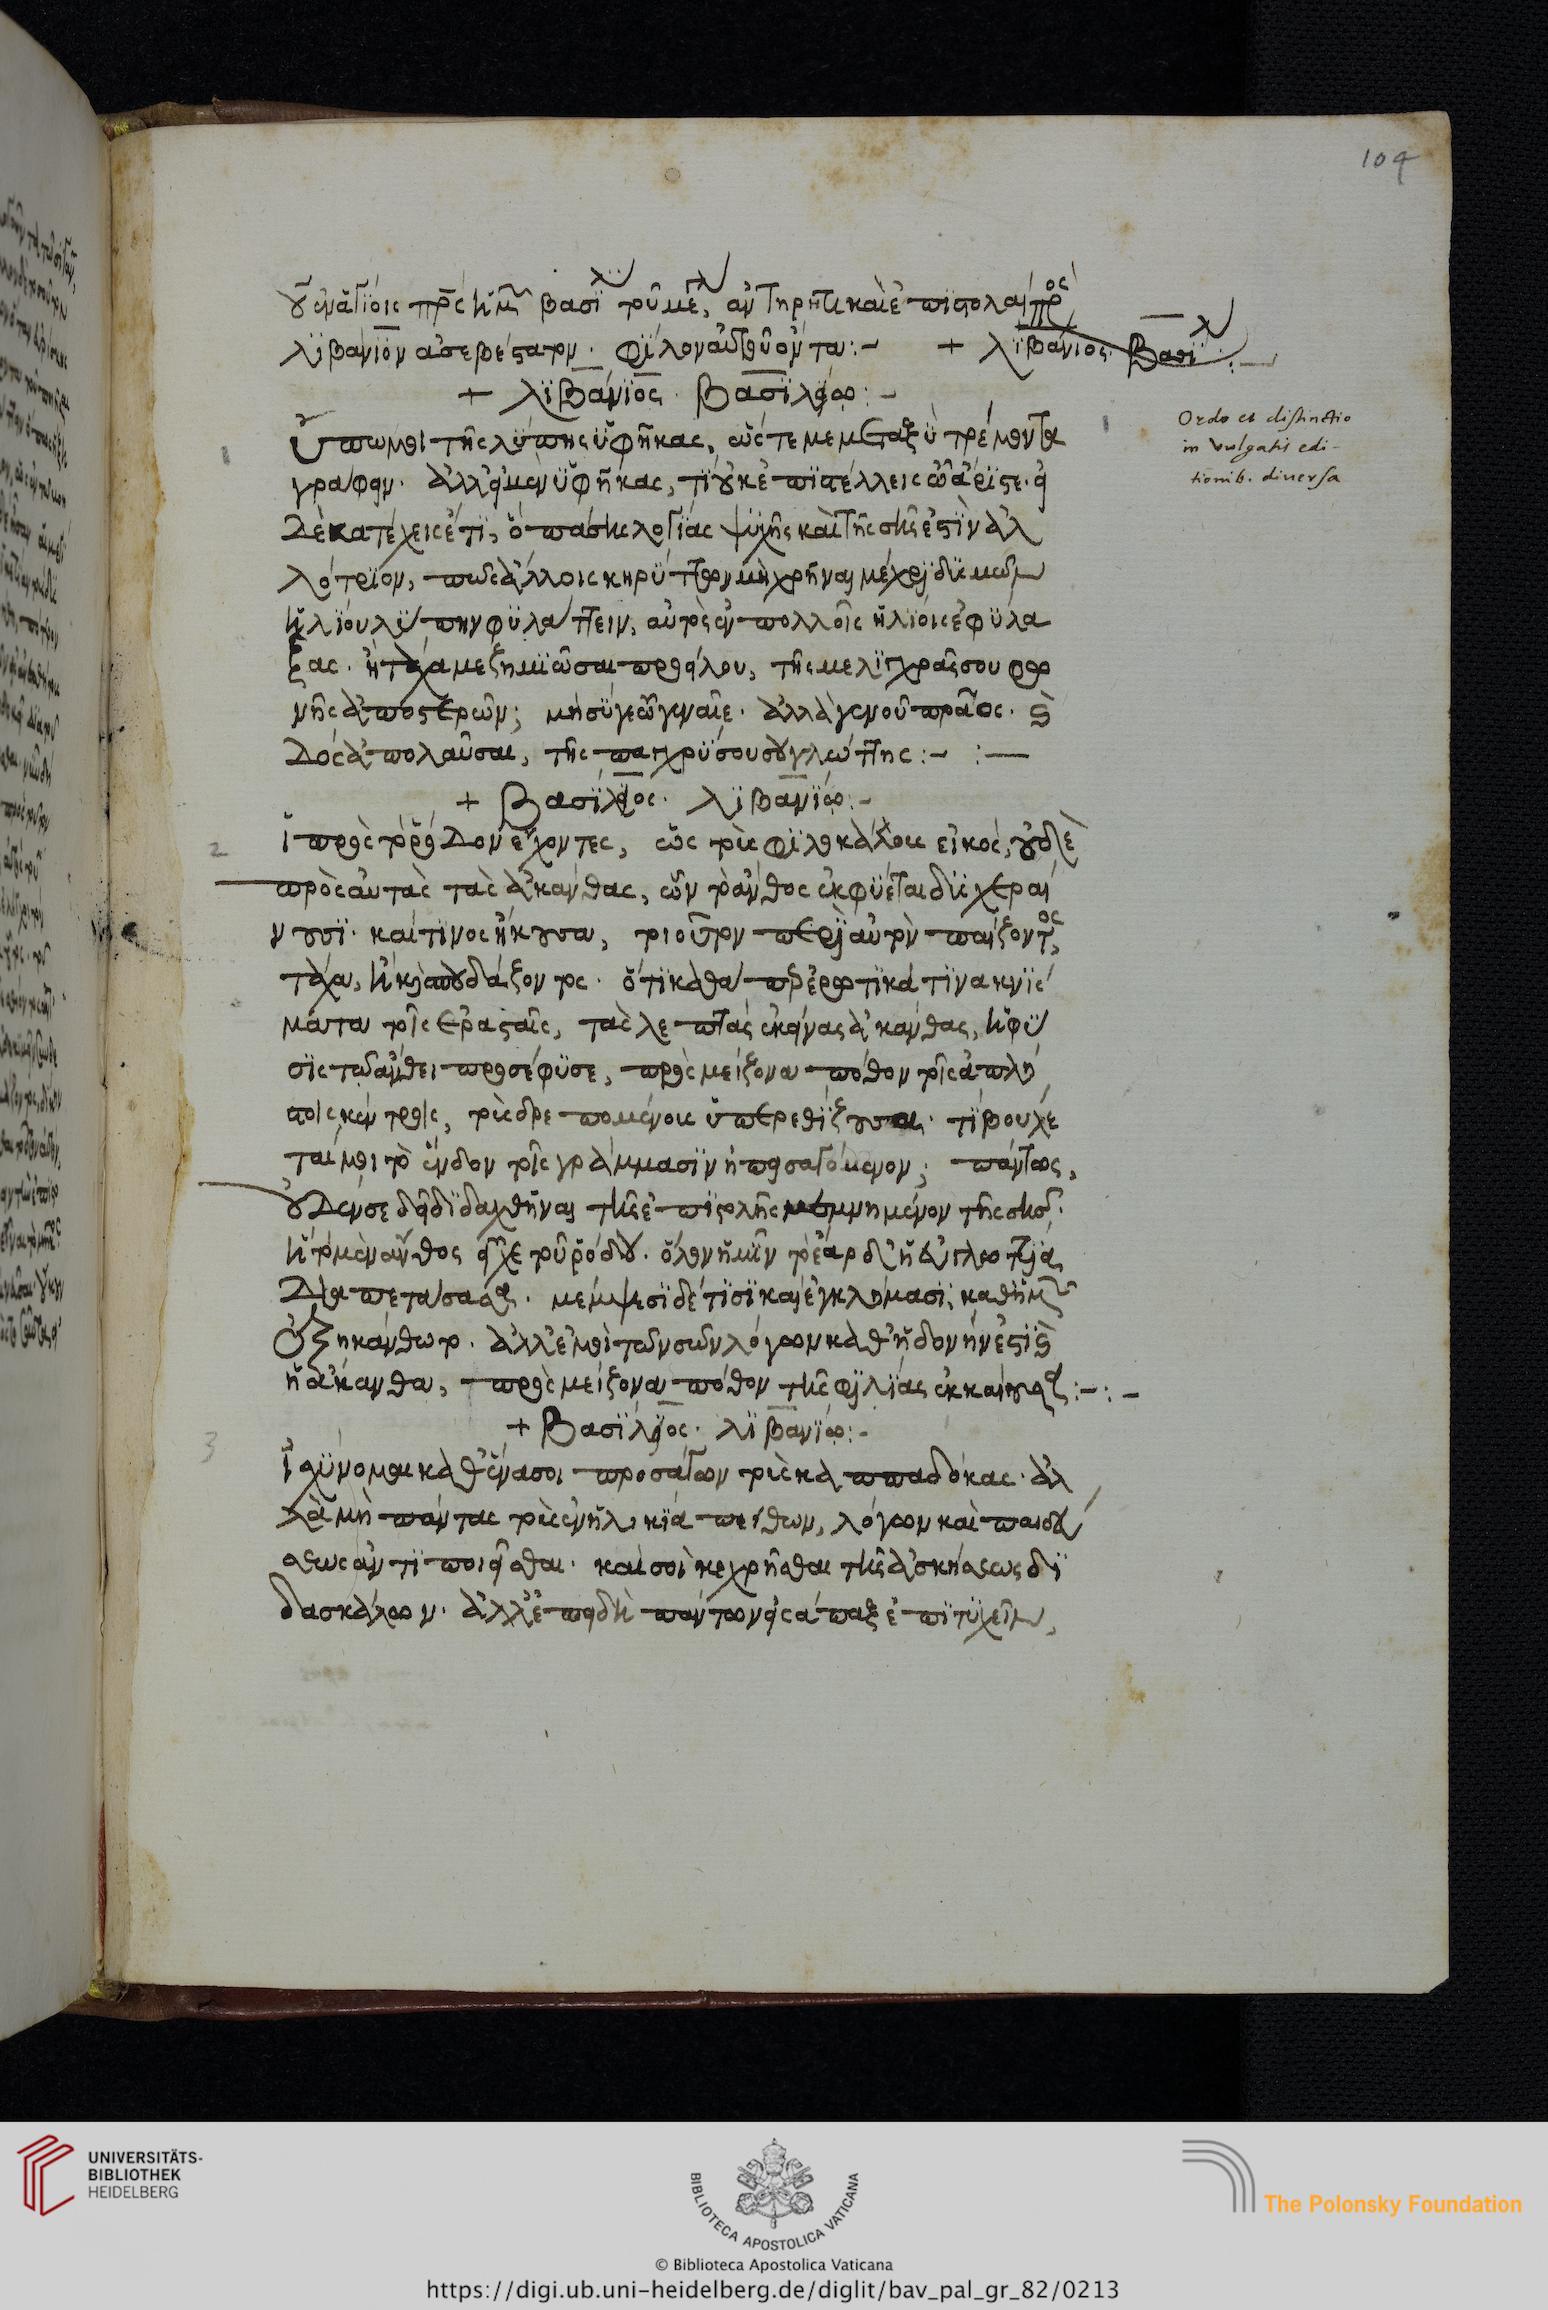 οῦ ἐν ἁγίοις πρς ἡμῶν βασιλ τοῦ μεγλ, ἀντιρητικαὶ ἐπιστολαὶ πρὸς
λιβάνιον ἀσεβέστατον. φίλον αὐτοῦ ὄντα:- + λιβάνιος. βασιλ :-
+ λιβάνιος. βασιλείω:-
ὔπω μοι τῆς λύπης ὑφῆκας, ὥς τέ με μεταξὺ τρέμοντα
γράφειν. ἀλλ' εἰ μὲν ὑφῆκας, τί οὐκ ἐπιστέλλεις ὦ ἄριστε. εἰ
δὲ κατέχεις ἔτι, ὃ πάσης λογίας ψυχῆς καὶ τῆς σῆς ἐστὶν ἀλ
λότριον, πῶς ἄλλοις κηρύττων μὴ χρῆναι μέχρι δυσμῶν
ἡλίου λύπην φυλάττειν, αὐτὸς ἐν πολλοῖς ἡλίοις ἐφύλα
ξας. ἢ τάχα με ζημιῶσαι προείλου, τῆς μελιχρᾶς σου φω
νῆς ἀποστερῶν; μὴ σύ γε ὦ γεναῖε. ἀλλὰ γενοῦ πρᾶος. καὶ
δὸς ἀπολαῦσαι, τῆς παγχρύσου σου γλώττης:- :—
+ βασίλειος. λιβανίω:-
2 ἱ πρὸς τὸ ῥόδον ἔχοντες, ὡς τοὺς φιλοκάλους εἰκός, οὐδὲ
πρὸς αὐτὰς τὰς ἀκάνθας, ὧν τὸ ἄνθος ἐκφύεται δυσχεραί
νουσι. καί τινος ἤκουσα, τιοῦτον περὶ αὐτὸν παίζοντος,
τάχα, ἢ καὶ σπουδάζοντος. ὅτι καθάπερ ἐρωτικά τινα κνίσ
ματα τοῖς ἐρασταῖς, τὰς λεπτὰς ἐκείνας ἀκάνθας, ἡ φύ
σις τῶ ἄνθει προσέφυσε, πρὸς μείζονα πόθον τοῖς ἀπλή
στοις κέντροις, τοὺς δρεπομένους ὑπερεθίζουσα. τί βούλε
ταί μοι τὸ ἔνδον τοῖς γράμμασιν ἠπεισαγόμενον; πάντως,
οὐδέν σε δεῖ διδαχθῆναι τῆς ἐπιστολῆς μεμνημένον τῆς σῆς.
ἣ τὸ μὲν ἄνθος εἶχε τοῦ ῥόδου. ὅλον ἡμῖν τὸ ἔαρ δι' εὐγλωττίας
διαπετάσασα. μέμψεσι δέ τισι καὶ ἐγκλήμασι, καθ' ἡμῶν
ἐξηκάνθωτο. ἀλλ' ἐμοὶ τῶν σῶν λόγων καθ' ἡδονήν ἐστι καὶ
ἡ ἄκανθα, πρὸς μείζονα πόθον τῆς φιλίας ἐκκαίουσα:-:-
+ βασίλειος. λιβανίω:-
3 ἰσχύνομαι καθ' ἕνα σοι προσάγων τοὺς καππαδόκας. ἀλ
λὰ μὴ πάντας τοὺς ἐν ἡλικία πείθων, λόγων καὶ παιδεύ
σεως ἀντιποιεῖσθαι. καί σοι κεχρῆσθαι τῆς ἀσκήσεως δι
δασκάλων. ἀλλ' ἐπειδὴ πάντων εἰς ἅπαξ ἐπιτυχεῖν,
104
Ordo et distinctio
in vulgatis edi-
tionib. diversa
UNIVERSITÄTS-
BIBLIOTHEK
HEIDELBERG
BIBLIOTECA APOSTOLICA VATICANA
The Polonsky Foundation
© Biblioteca Apostolica Vaticana
https://digi.ub.uni-heidelberg.de/diglit/bav_pal_gr_82/0213